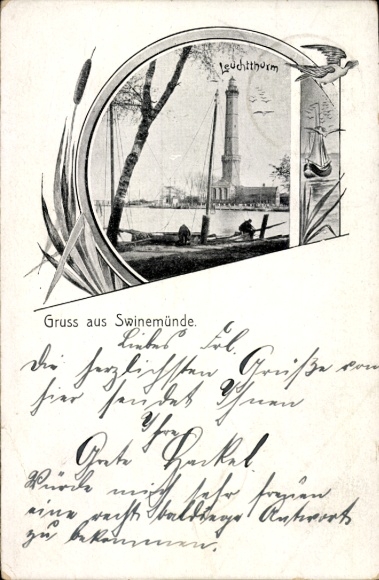 Leuchtthurm
Gruss aus Swinemünde.
Liebes Frl.
Die herzlichsten Grüße von
hier sendet Ihnen
Ihre
Grete Hackel.
Würde mich sehr freuen
eine recht baldige Antwort
zu bekommen.